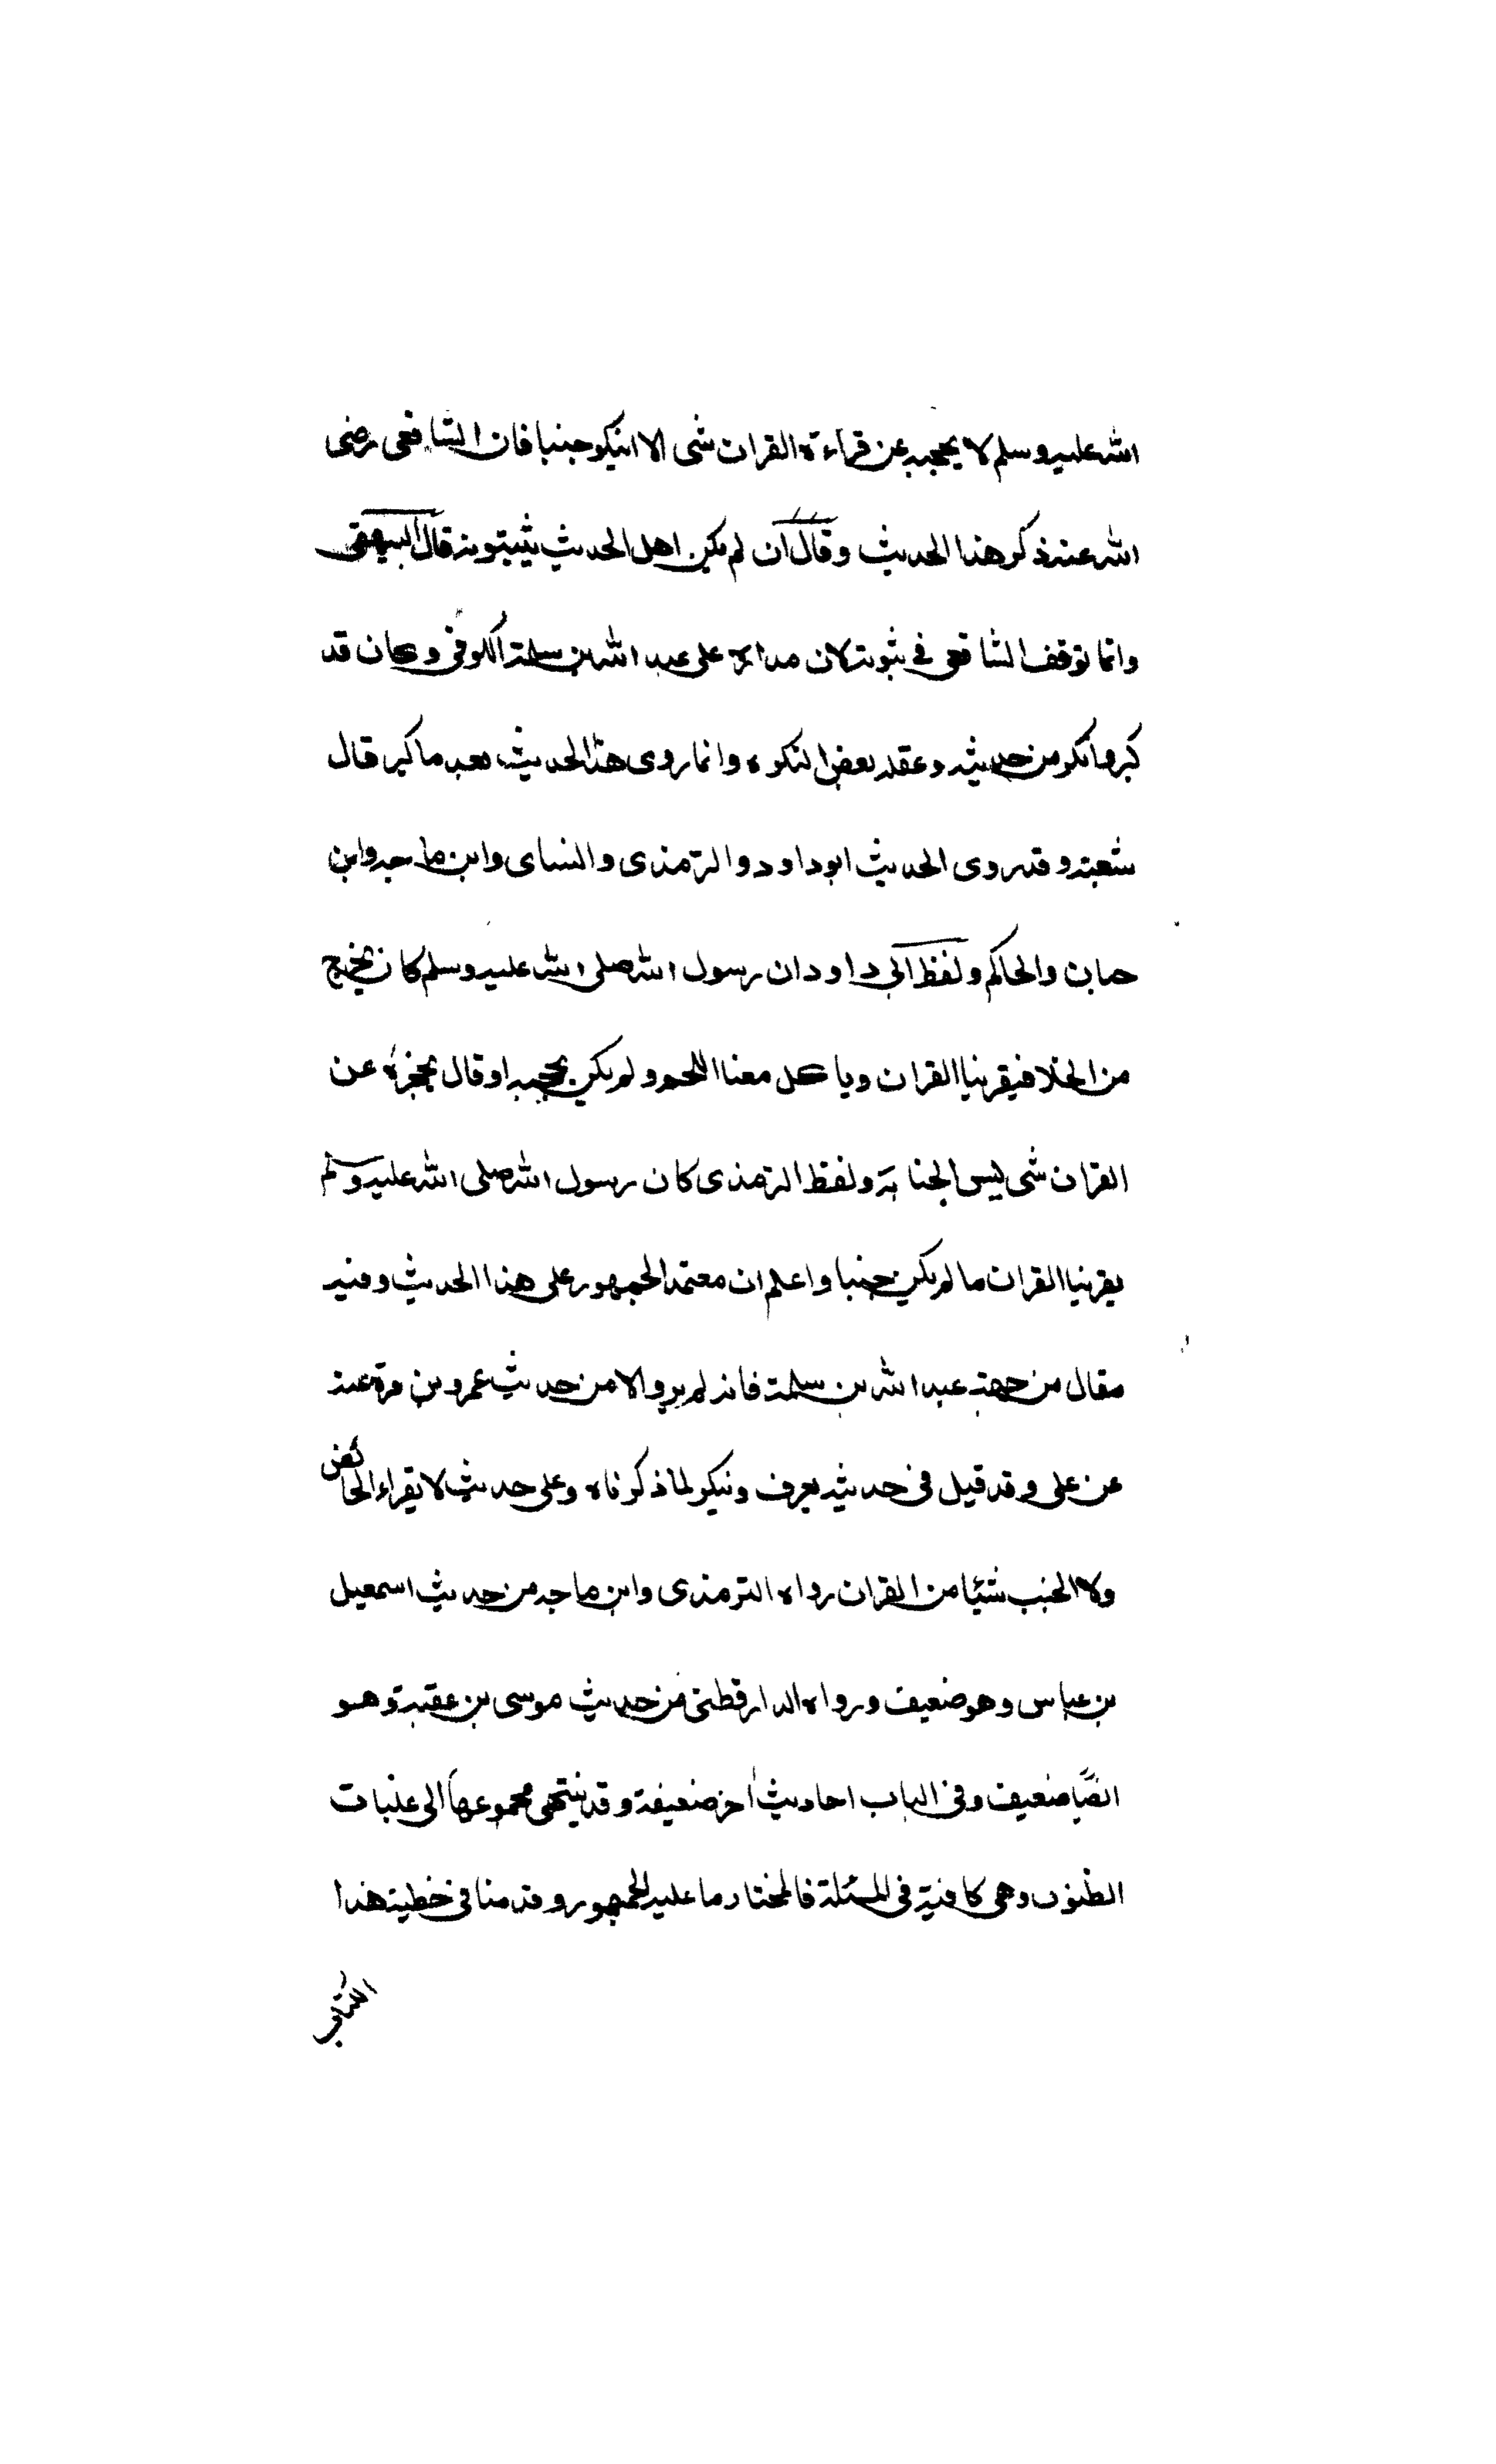 الله عليه وسلم لا يحجبه عن قراءة القران شى الا ان يكو جنبا فان الشافعى رضى
الله عنه ذكر هذا الحديث وقال ان لم يكن اهل الحديث يثبتونه قال البيهقى
وانما توقف الشافعى فى ثبوته لان مداره على عبد الله بن سلمة الكوفى وكان قد
كبر وانكر من حديثه وعقله بعض النكره وانما روى هذا الحديث بعد ما كبر قال
شعبة وقد روى الحديث ابو داود والترمذى والنساى وابن ماجه وابن
حبان والحاكم ولفظ ابى داود ان رسول الله صلى الله عليه وسلم كان يخرج
من الخلا فيقرينا القران وياكل معنا اللحم ولم يكن يحجبه او قال يحجزه عن
القران شى ليس الجنابة ولفظ الترمذى كان رسول الله صلى الله عليه وسلم
يقرينا القران ما لم يكن جنبا واعلم ان معتمد الجمهور على هذا الحديث وفيه
مقال من جهة عبد الله بن سلمة فانه لم يرو الا من حديث عمرو بن مرة عنه
عن على وقد قيل فى حديثه يعرف وينكر لما ذكرناه وعلى حديث لا يقراء الحائض
ولا الجنب شيئا من القران رواه الترمذى وابن ماجه من حديث اسمعيل
بن عياس وهو ضعيف ورواه الدارقطنى من حديث موسى بن عقبة وهو
ايضًا ضعيف وفى الباب احاديث اخر ضعيفة وقد ينتهى مجموعها الى غلبات
الظنون وهى كافية فى المسئلة فالمختار ما عليه الجمهور وقد منا فى خطبة هذا